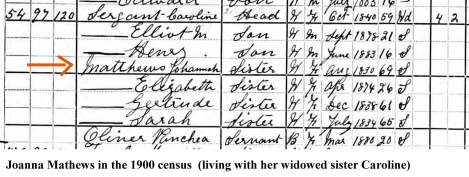 Son July 1883 16 S
54 97 120 Sergant Caroline Head W F Oct 1840 59 Wd 4 2
Elliot M Son W M Sept 1878 21 S
Henry Son W M June 1883 16 S
Matthews Johannah Sister W F Aug 1830 69 S
Elizabeth Sister W F Apr 1874 26 S
Gertrude Sister W F Dec 1838 61 S
Sarah Sister W F July 1834 65 S
Oliner Panchea Servant B F Mar 1880 20 S
Joanna Mathews in the 1900 census (living with her widowed sister Caroline)